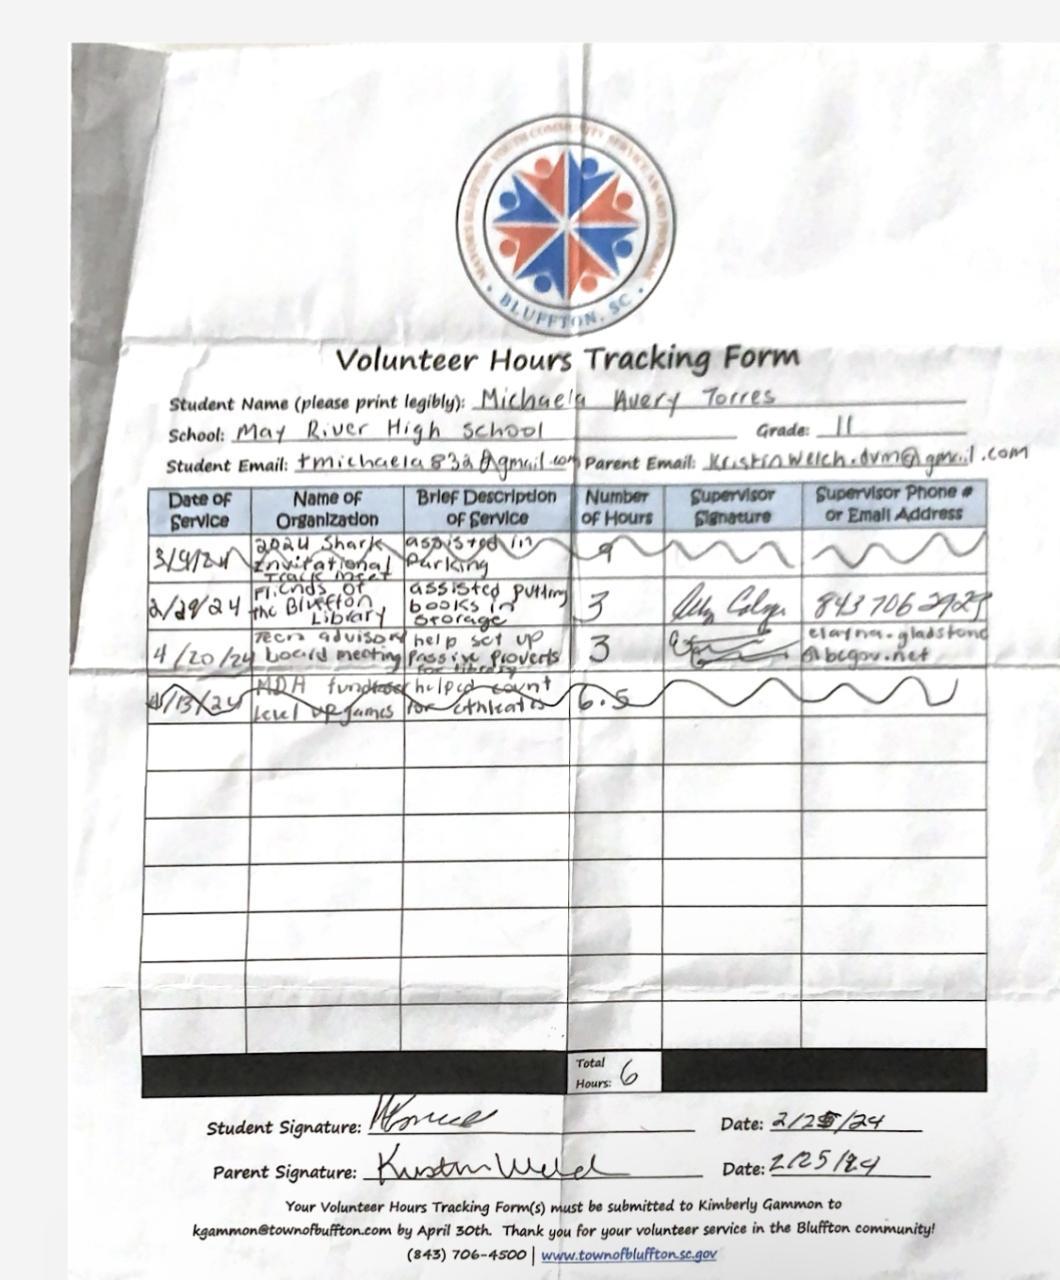 MAYOR'S BLUFFTON YOUTH COMMUNITY SERVICE AWARD PROGRAM
• BLUFFTON, SC •
Volunteer Hours Tracking Form
Student Name (please print legibly): Michaela Avery Torres
School: May River High School Grade: 11
Student Email: tmichaela832@gmail.com Parent Email: KristinWelch.dvm@gmail.com
Date of Service Name of Organization Brief Description of Service Number of Hours Supervisor Signature Supervisor Phone # or Email Address
3/9/24 2024 Shark Invitational Track meet assisted in Parking 9
2/29/24 Friends of the Bluffton Library assisted putting books in storage 3 843 706 2925
4/20/24 advisory board meeting help set up Passive for library 3 @bcgov.net
4/13/24 MDA level up games helped count for 6.5
Total Hours: 6
Student Signature: Date: 2/25/24
Parent Signature: Kristin Welch Date: 2/25/24
Your Volunteer Hours Tracking Form(s) must be submitted to Kimberly Gammon to
kgammon@townofbuffton.com by April 30th. Thank you for your volunteer service in the Bluffton community!
(843) 706-4500 | www.townofbluffton.sc.gov